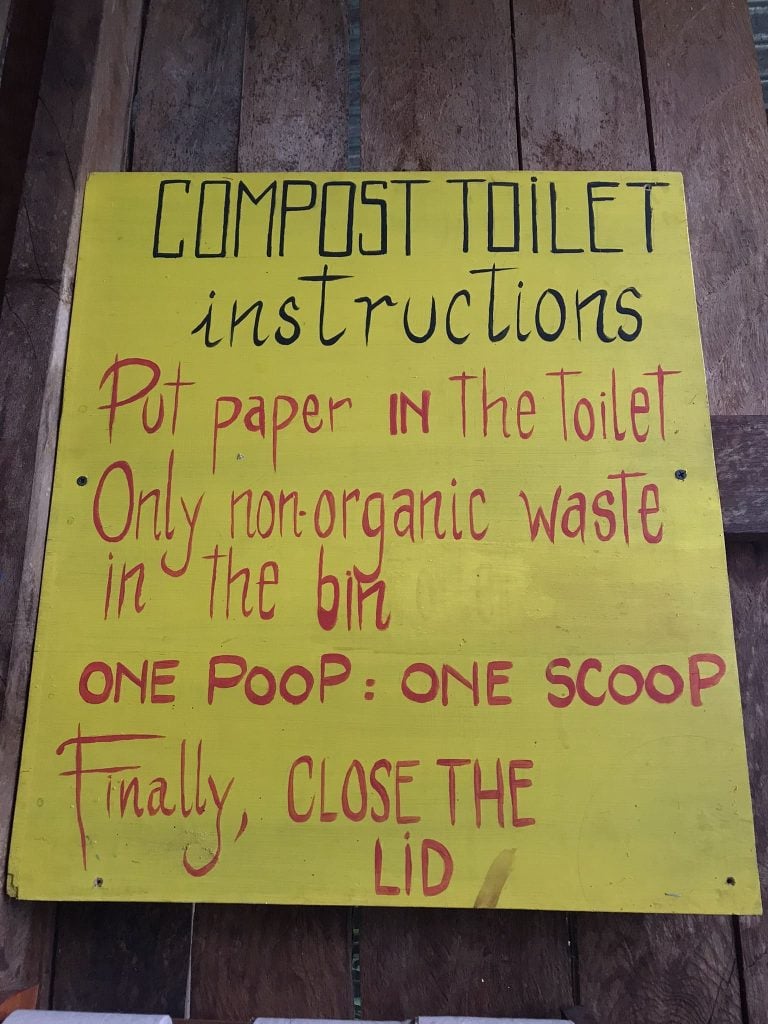 COMPOST TOiLET
instructions
Put paper IN The Toilet
Only non-organic waste
in the bin
ONE POOP: ONE SCOOP
Finally, CLOSE THE
LiD